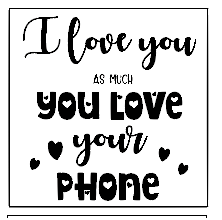 I love you
AS MUCH
you Love
your
PHONE